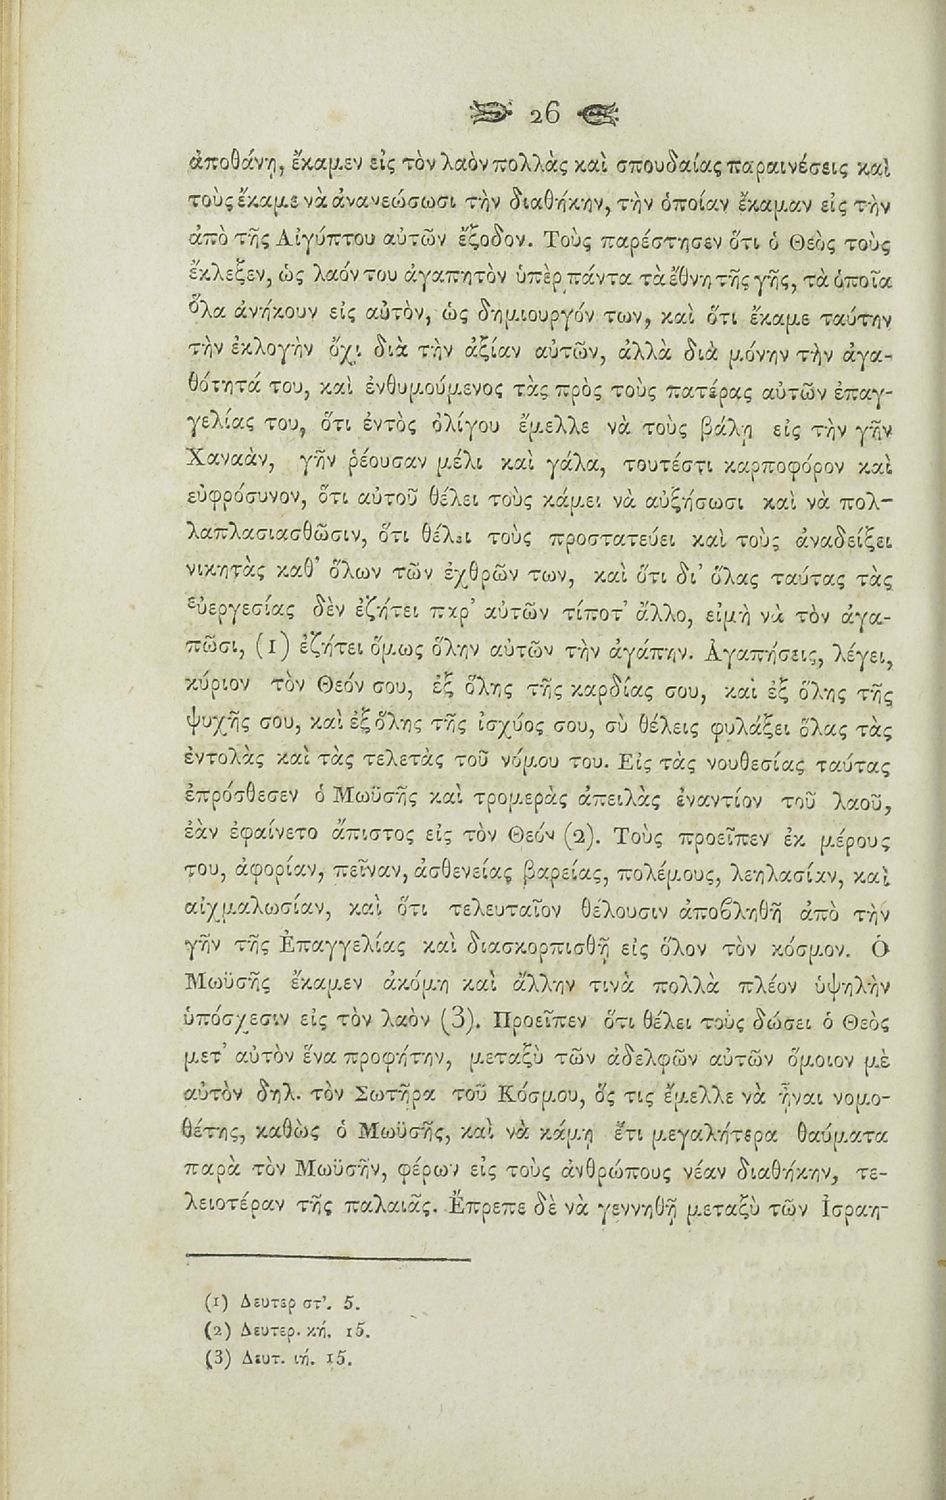 26
ἀποθάνῃ, ἔκαμεν εἰς τὸν λαὸν πολλὰς καὶ σπουδαίας παραινέσεις καὶ
τοὺς ἔκαμε νὰ ἀνανεώσωσι τὴν διαθήκην, τὴν ὁποίαν ἔκαμαν εἰς τὴν
ἀπὸ τῆς Αἰγύπτου αὐτῶν ἔξοδον. Τοὺς παρέστησεν ὅτι ὁ Θεὸς τοὺς
ἔκλεξεν, ὡς λαόν του ἀγαπητὸν ὑπὲρ πάντα τὰ ἔθνη τῆς γῆς, τὰ ὁποῖα
ὅλα ἀνήκουν εἰς αὐτὸν, ὡς δημιουργόν των, καὶ ὅτι ἔκαμε ταύτην
τὴν ἐκλογὴν ὄχι διὰ τὴν ἀξίαν αὐτῶν, ἀλλὰ διὰ μόνην τὴν ἀγα-
θότητά του, καὶ ἐνθυμούμενος τὰς πρὸς τοὺς πατέρας αὐτῶν ἐπαγ-
γελίας του, ὅτι ἐντὸς ὀλίγου ἔμελλε νὰ τοὺς βάλῃ εἰς τὴν γῆν
Χαναὰν, γῆν ῥέουσαν μέλι καὶ γάλα, τουτέστι καρποφόρον καὶ
εὐφρόσυνον, ὅτι αὐτοῦ θέλει τοὺς κάμει νὰ αὐξήσωσι καὶ νὰ πολ-
λαπλασιασθῶσιν, ὅτι θέλει τοὺς προστατεύει καὶ τοὺς ἀναδείξει
νικητὰς καθ' ὅλων τῶν ἐχθρῶν των, καὶ ὅτι δι' ὅλας ταύτας τὰς
εὐεργεσίας δὲν ἐζήτει παρ' αὐτῶν τίποτ' ἄλλο, εἰμὴ νὰ τὸν ἀγα-
πῶσι, (1) ἐζήτει ὅμως ὅλην αὐτῶν τὴν ἀγάπην. Ἀγαπήσεις, λέγει,
κύριον τὸν Θεόν σου, ἐξ ὅλης τῆς καρδίας σου, καὶ ἐξ ὅλης τῆς
ψυχῆς σου, καὶ ἐξ ὅλης τῆς ἰσχύος σου, σὺ θέλεις φυλάξει ὅλας τὰς
ἐντολὰς καὶ τὰς τελετὰς τοῦ νόμου του. Εἰς τὰς νουθεσίας ταύτας
ἐπρόσθεσεν ὁ Μωϋσῆς καὶ τρομερὰς ἀπειλὰς ἐναντίον τοῦ λαοῦ,
ἐὰν ἐφαίνετο ἄπιστος εἰς τὸν Θεόν (2). Τοὺς προεῖπεν ἐκ μέρους
του, ἀφορίαν, πεῖναν, ἀσθενείας βαρείας, πολέμους, λεηλασίαν, καὶ
αἰχμαλωσίαν, καὶ ὅτι τελευταῖον θέλουσιν ἀποβληθῆ ἀπὸ τὴν
γῆν τῆς Ἐπαγγελίας καὶ διασκορπισθῆ εἰς ὅλον τὸν κόσμον. Ὁ
Μωϋσῆς ἔκαμεν ἀκόμη καὶ ἄλλην τινὰ πολλὰ πλέον ὑψηλὴν
ὑπόσχεσιν εἰς τὸν λαὸν (3). Προεῖπεν ὅτι θέλει τοὺς δώσει ὁ Θεὸς
μετ' αὐτὸν ἕνα προφήτην, μεταξὺ τῶν ἀδελφῶν αὐτῶν ὅμοιον μὲ
αὐτὸν δηλ. τὸν Σωτῆρα τοῦ Κόσμου, ὅς τις ἔμελλε νὰ ἦναι νομο-
θέτης, καθὼς ὁ Μωϋσῆς, καὶ νὰ κάμῃ ἔτι μεγαλήτερα θαύματα
παρὰ τὸν Μωϋσῆν, φέρων εἰς τοὺς ἀνθρώπους νέαν διαθήκην, τε-
λειοτέραν τῆς παλαιᾶς. Ἔπρεπε δὲ νὰ γεννηθῇ μεταξὺ τῶν Ἰσραη-
(1) Δευτερ στ'. 5.
(2) Δευτερ. κή. 15.
(3) Δευτ. ιή. 15.